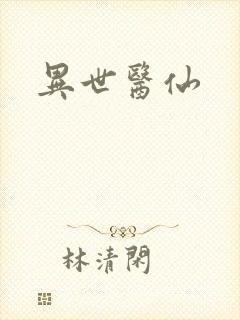 異世醫仙
林清閑